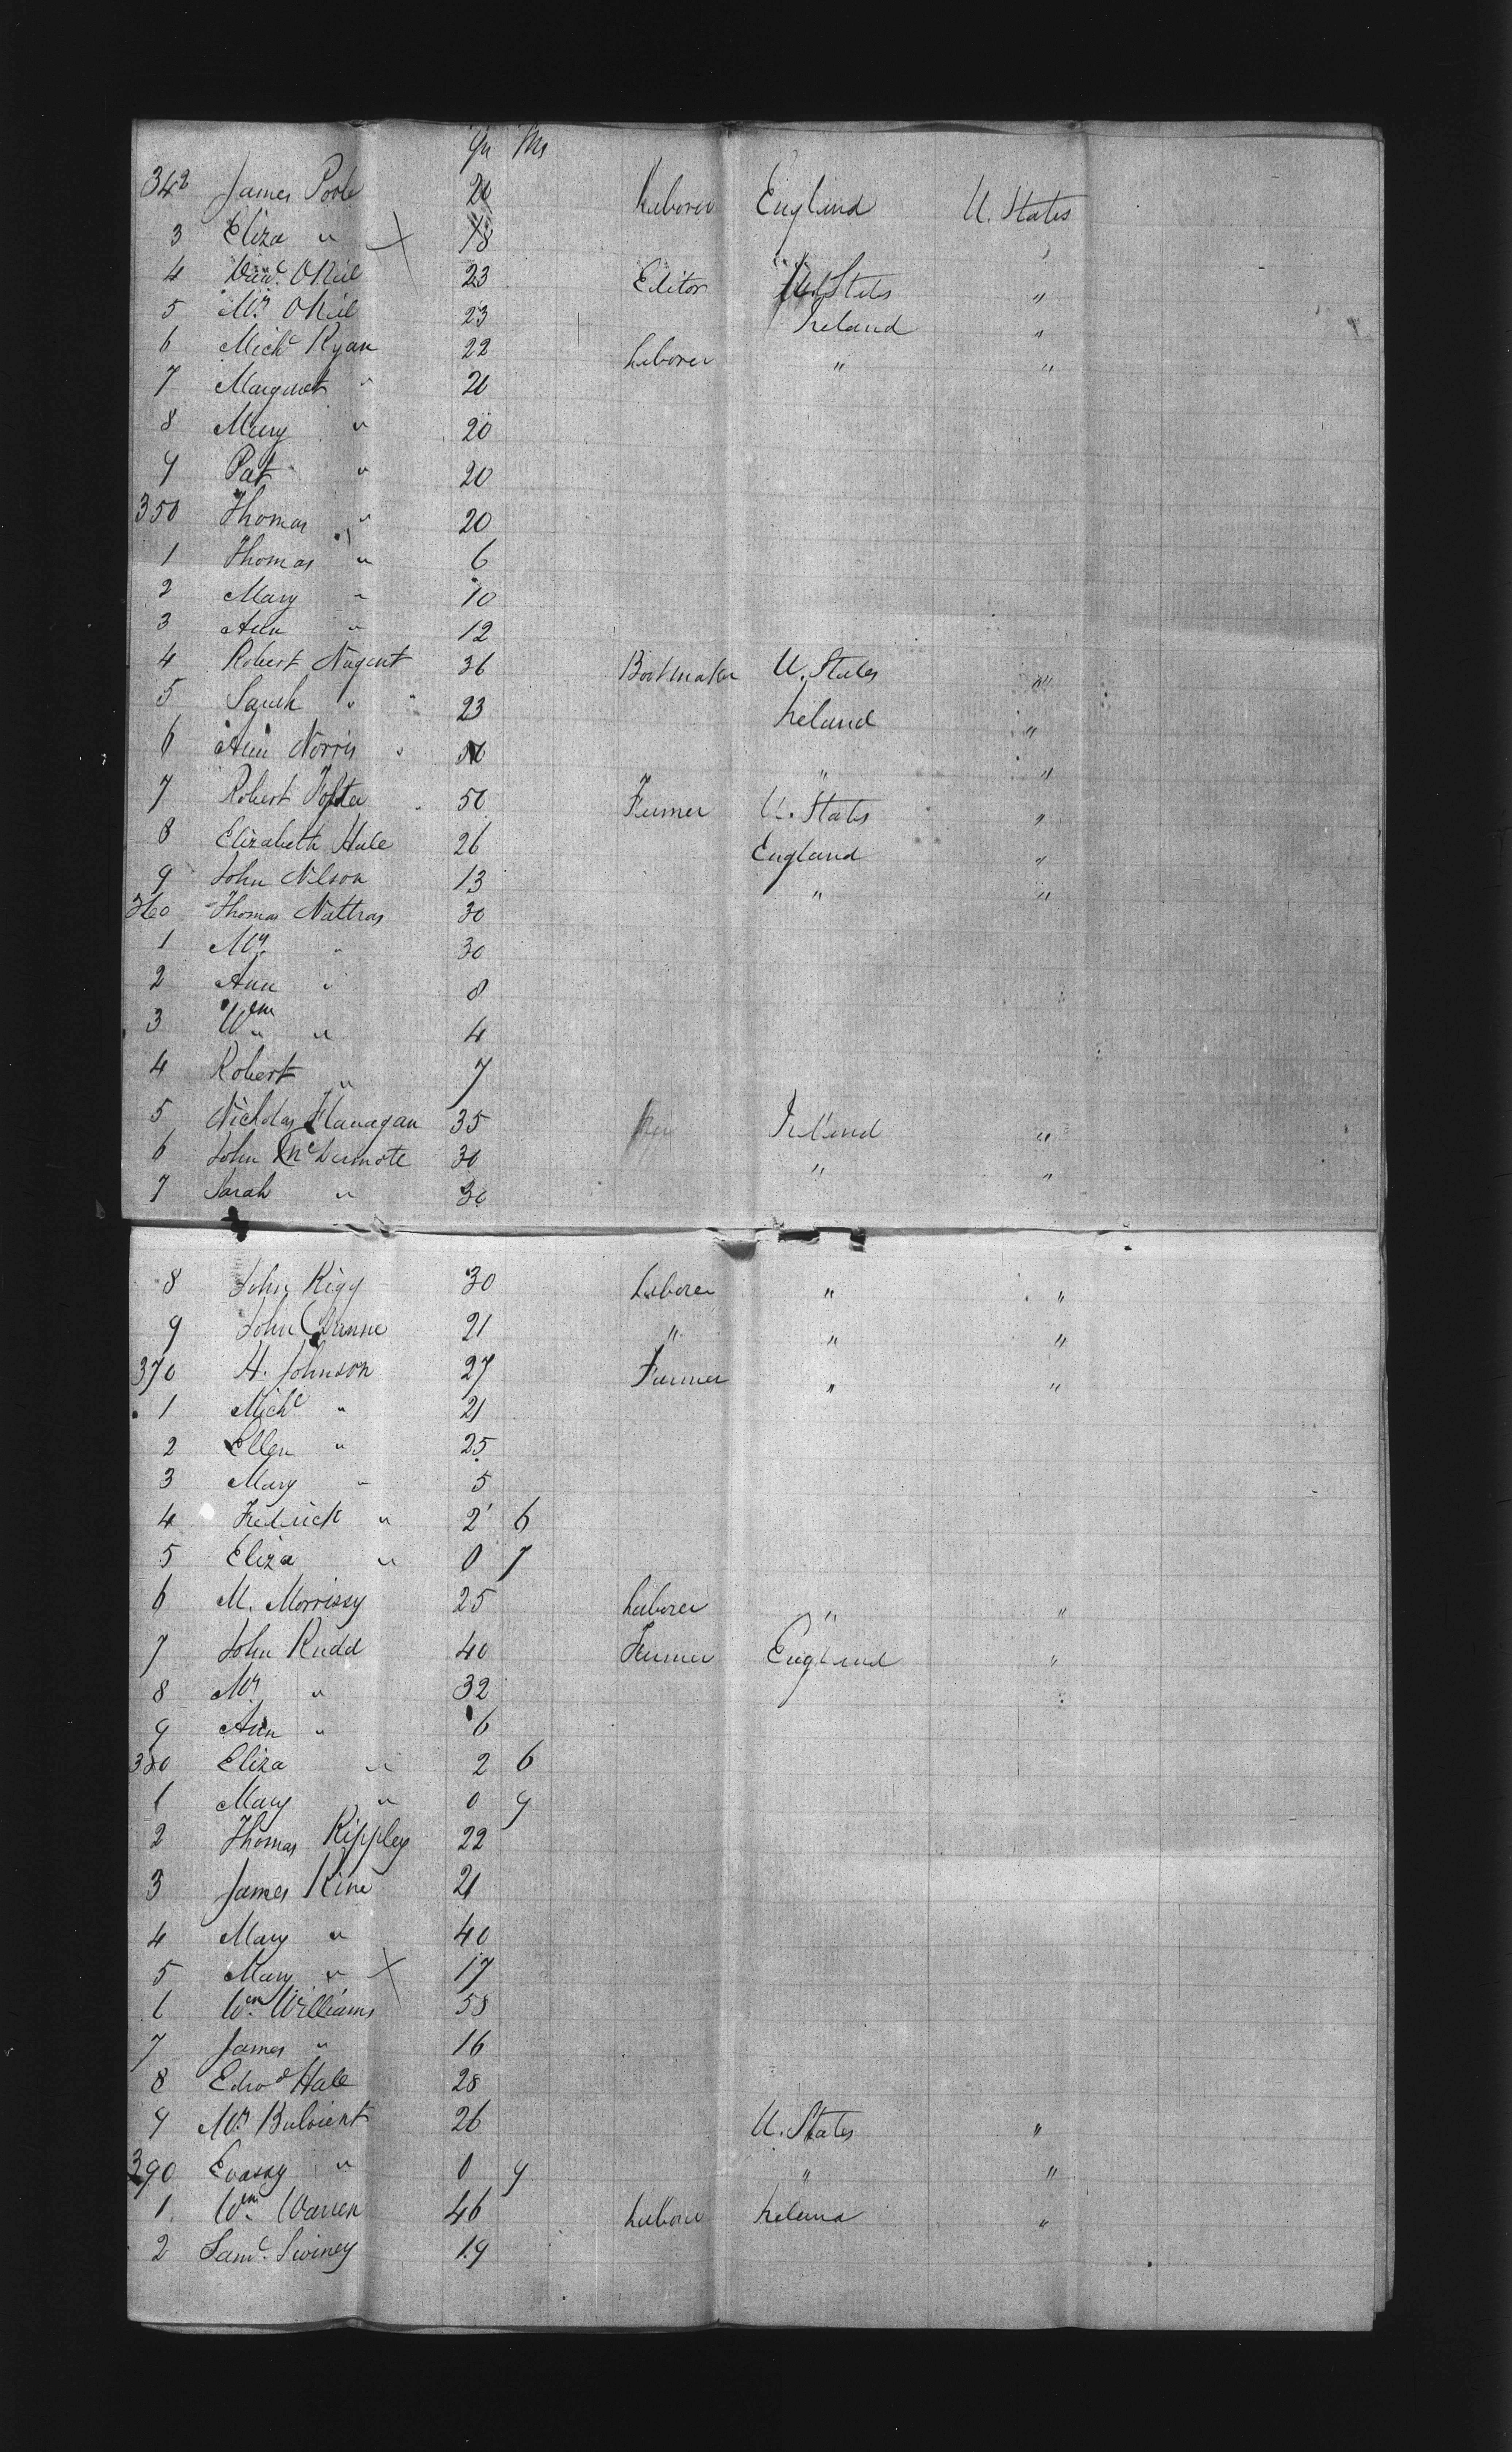 Yrs Ms
342 James Poole 20 Laborer England U. States
3 Eliza " 18 "
4 ONeil 23 Editor U. States "
5 Mrs ONeil 23 Ireland "
6 Michl Ryan 22 Laborer " "
7 Margaret " 20
8 Mary " 20
9 Pat " 20
350 Thomas " 20
1 Thomas " 6
2 Mary " 10
3 Ann " 12
4 Robert Nugent 36 Bootmaker U. States "
5 Sarah " 23 Ireland "
6 Ann Norris " "
7 Robert Foster 50 Farmer U. States "
8 Elizabeth Hale 26 England "
9 John Nelson 13 " "
360 Thomas Nattras 30
1 Mrs " 30
2 Ann " 8
3 Wm " 4
4 Robert " 7
5 Nicholas Flanagan 35 Ireland "
6 John McDermote 30 " "
7 Sarah " 30
8 John Rigg 30 Laborer " "
9 John Dunne 21 " " "
370 H. Johnson 27 Farmer " "
1 Michl " 21
2 Ellen " 25
3 Mary " 5
4 Fredrick " 2 6
5 Eliza " 0 7
6 M. Morrissy 25 Laborer " "
7 John Rudd 40 Farmer England "
8 Mrs " 32
9 Ann " 6
380 Eliza " 2 6
1 Mary " 0 9
2 Thomas Rippley 22
3 James Kine 21
4 Mary " 40
5 Mary " 17
6 Wm Williams 58
7 James " 16
8 Edwd Hale 28
9 Mrs 26 U. States "
390 " 0 9 " "
1 Wm Warren 46 Laborer Ireland "
2 Saml. Swiney 19